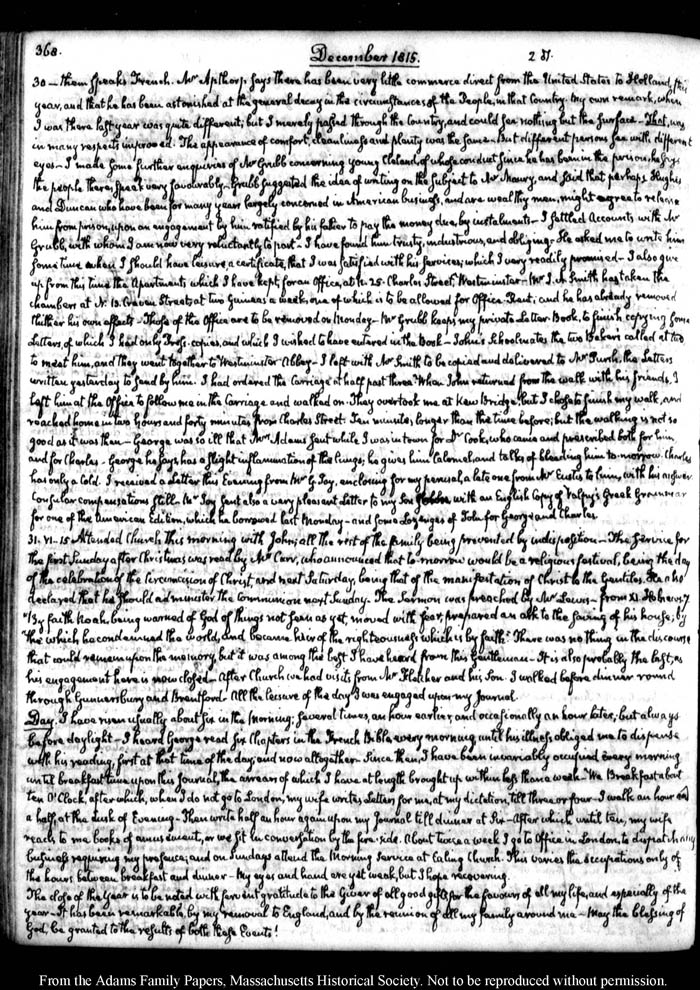 368.
December 1815.
28.
30 — them speaks French. Mr Apthorp says there has been very little commerce direct from the United States to Holland, this
year, and that he has been astonished at the general decay in the circumstances of the People, in that Country. My own remark, when
I was there last year was quite different; but I merely passed through the Country, and could see nothing but the surface — That, was
in many respects improved. The appearance of comfort, cleanliness and plenty was the same. But different persons see with different
eyes — I made some further enquiries of Mr Grubb concerning young Cleland, of whose conduct since he has been in the prison, he says
the people there, speak very favourably — Grubb suggested the idea of writing on the subject to Mr Maury, and said that perhaps Hughes
and Duncan who have been for many years largely concerned in American business, and are wealthy men, might agree to release
him from prison, upon an engagement by him ratified by his father to pay the money due, by instalments — I settled Accounts with Mr
Grubb, with whom I am now very reluctantly to part — I have found him trusty, industrious, and obliging — He asked me to write him
some time when I should have leisure, a certificate, that I was satisfied with his services, which I very readily promised — I also give
up from this time the Apartments which I have kept, for an Office, at N. 25. Charles Street, Westminster — Mr J. A. Smith has taken the
chambers at N. 13. Craven Street, at two Guineas a week, one of which is to be allowed for Office Rent; and he has already removed
thither his own effects — Those of the Office are to be removed on Monday — Mr Grubb keeps my private Letter-Book, to finish copying some
Letters, of which I had only Press-copies, and which I wished to have entered in the Book — John's Schoolmates the two Bakers called at two
to meet him, and they went together to Westminster Abbey — I left with Mr Smith to be copied and delivered to Mr the Letters
written yesterday to send by him. I had ordered the Carriage at half past three. When John returned from the walk with his friends, I
left him at the Office to follow me in the Carriage and walked on. They overtook me at Kew Bridge, but I chose to finish my walk, and
reached home in two hours and forty minutes from Charles Street. Ten minutes longer than the time before; but the walking is not so
good as it was then — George was so ill that Mrs Adams sent while I was in town for Dr Cook, who came and prescribed both for him,
and for Charles — George he says has a slight inflammation of the lungs; he gives him Calomel and talks of bleeding him to-morrow. Charles
has only a Cold. I received a Letter this Evening from Mr G. Joy, enclosing for my perusal, a late one from Mr Eustis to him, with his answer
Consular compensations still. Mr Joy sent also a very pleasant Letter to my Son with an English Copy of Valpy's Greek Grammar
for one of the American Edition, which he borrowed last Monday — and some Lozenges of Tolu for George and Charles
31. VI-15 Attended Church, this morning with John; all the rest of the family being prevented by indisposition — The Service for
the first Sunday after Christmas was read by Mr Carr, who announced that to-morrow would be a religious festival, being the day
of the celebration of the Circumcision of Christ, and next Saturday, being that of the manifestation of Christ to the Gentiles. He also
declared that he should administer the Communion next Sunday. The Sermon was preached by Mr Lewis — from XI. Hebrews 7
"By faith Noah, being warned of God of things not seen as yet, moved with fear, prepared an ark to the saving of his house; by
the which he condemned the world, and became heir of the righteousness which is by faith." There was nothing in the discourse
that could remain upon the memory, but it was among the best I have heard from this Gentleman — It is also probably the last, as
his engagement here is now closed — After Church we had visits from Mr Fletcher and his Son. I walked before dinner round
through Gunnersbury and Brentford. All the leisure of the day I was engaged upon my Journal.
Day. I have risen usually about six in the Morning; several times, an hour earlier, and occasionally an hour later, but always
before daylight — I heard George read six Chapters in the French Bible, every morning until his illness, obliged me to dispense
with his reading, first at that time of the day, and now altogether. Since then, I have been invariably occupied every morning
until breakfast time upon this Journal, the arrears of which I have at length brought up within less than a week — We Breakfast about
ten O'Clock, after which, when I do not go to London, my wife writes Letters for me, at my dictation, till three or four — I walk an hour and
a half at the dusk of Evening — Then write half an hour again upon my Journal till dinner at Six — After which until ten, my wife
reads to me books of amusement, or we sit in conversation by the fire-side. About twice a week I go to Office in London, to dispatch any
business requiring my presence; and on Sundays attend the Morning Service at Ealing Church. This varies the occupations only of
the hours between breakfast and dinner — My eyes and hand are yet weak, but I hope recovering.
The close of the Year is to be noted with fervent gratitude to the Giver of all good gifts for the favours of all my life, and especially of the
year — It has been remarkable, by my removal to England, and by the reunion of all my family around me — May the blessing of
God, be granted to the results of both these Events!
From the Adams Family Papers, Massachusetts Historical Society. Not to be reproduced without permission.